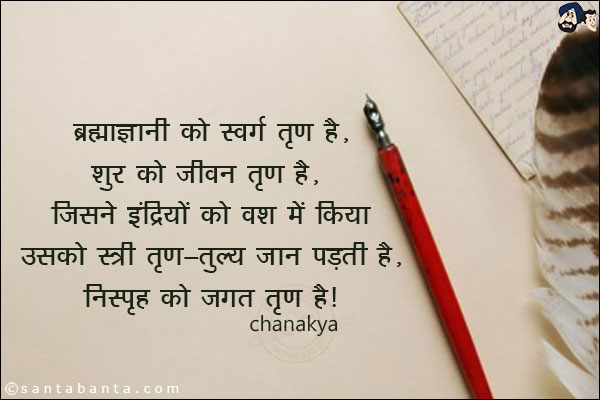 ब्रह्माज्ञानी को स्वर्ग तृण है,
शुर को जीवन तृण है,
जिसने इंद्रियों को वश में किया
उसको स्त्री तृण–तुल्य जान पड़ती है,
निस्पृह को जगत तृण है!
chanakya
©santabanta.com